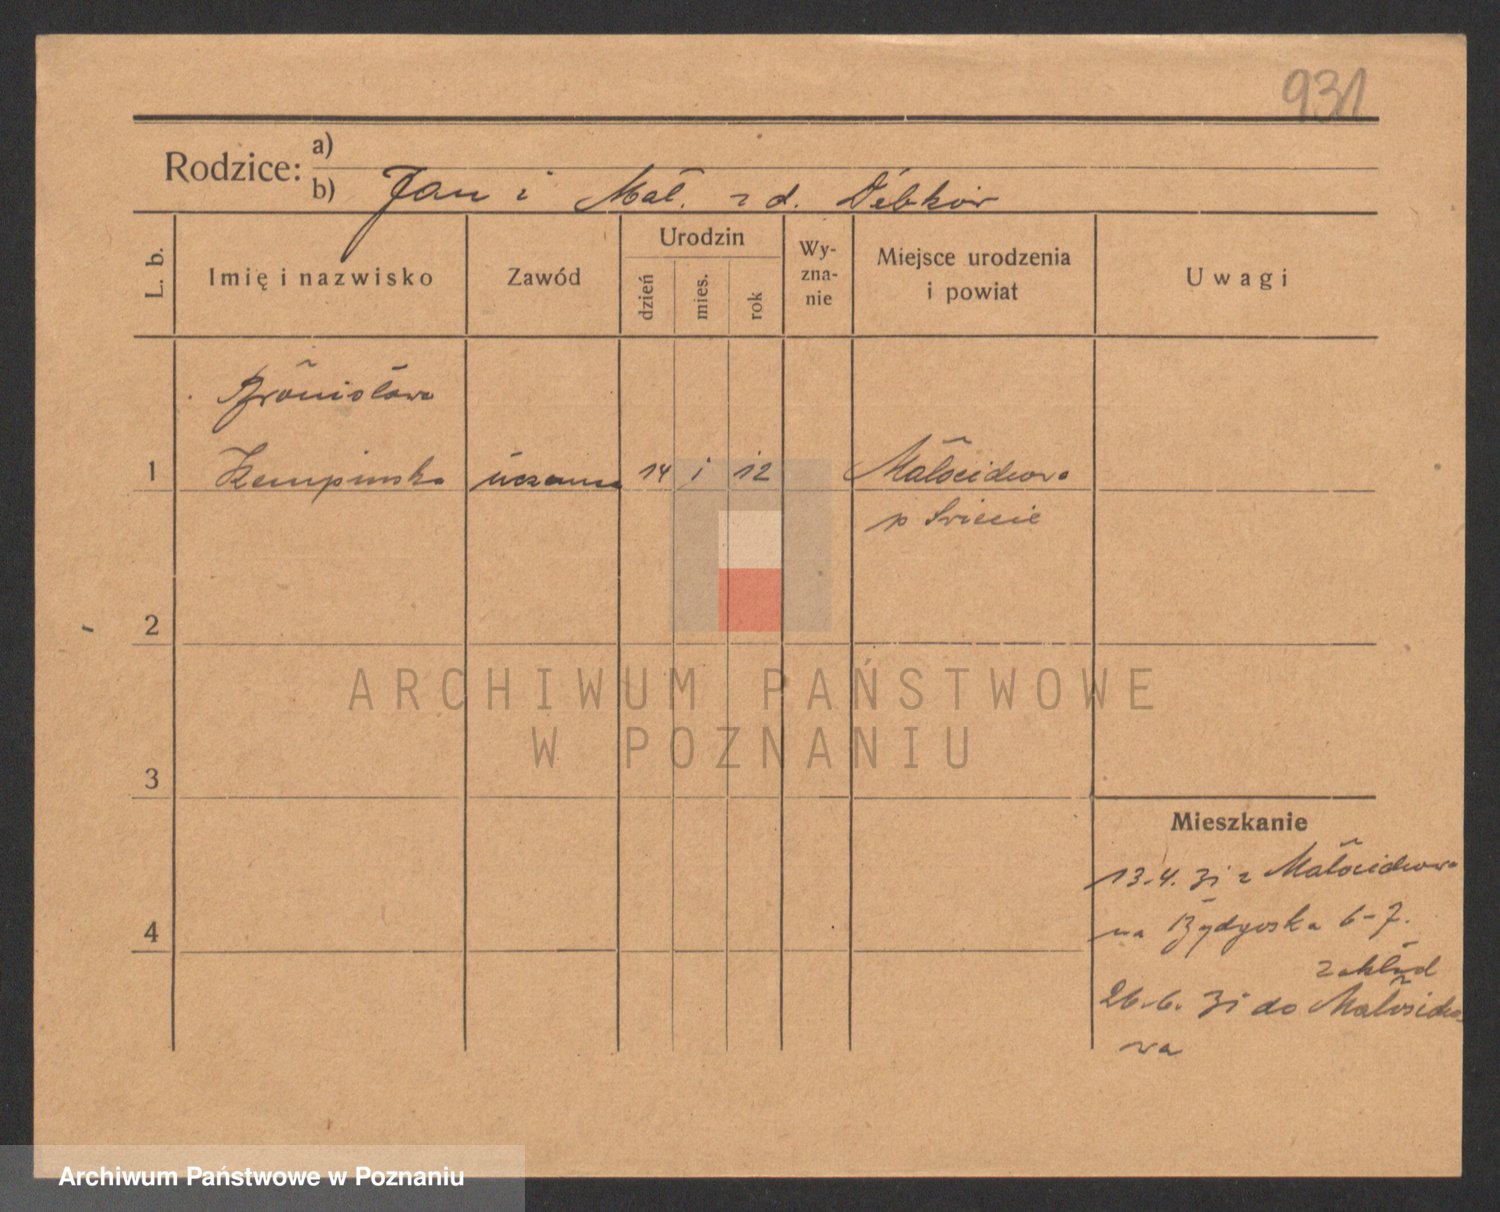 931
Rodzice: a)
b) Jan i Mał. z d. Dębków
L. b.
Imię i nazwisko
Zawód
Urodzin
dzień
mies.
rok
Wy-
zna-
nie
Miejsce urodzenia
i powiat
Uwagi
Bronisława
1 Kempinska uczenna 14 1 12 Małociechowo
p Świecie
2
3
4
Mieszkanie
13.4. 31 z Małociechowo
na Bydgoska 6-7.
zakład
26.6. 31 do Małociecho
wa
ARCHIWUM PAŃSTWOWE
W POZNANIU
Archiwum Państwowe w Poznaniu